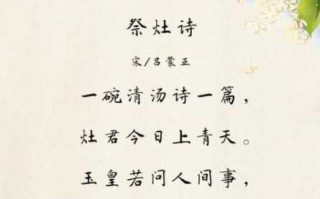 祭灶诗
宋/吕蒙正
一碗清汤诗一篇，
灶君今日上青天。
玉皇若问人间事，